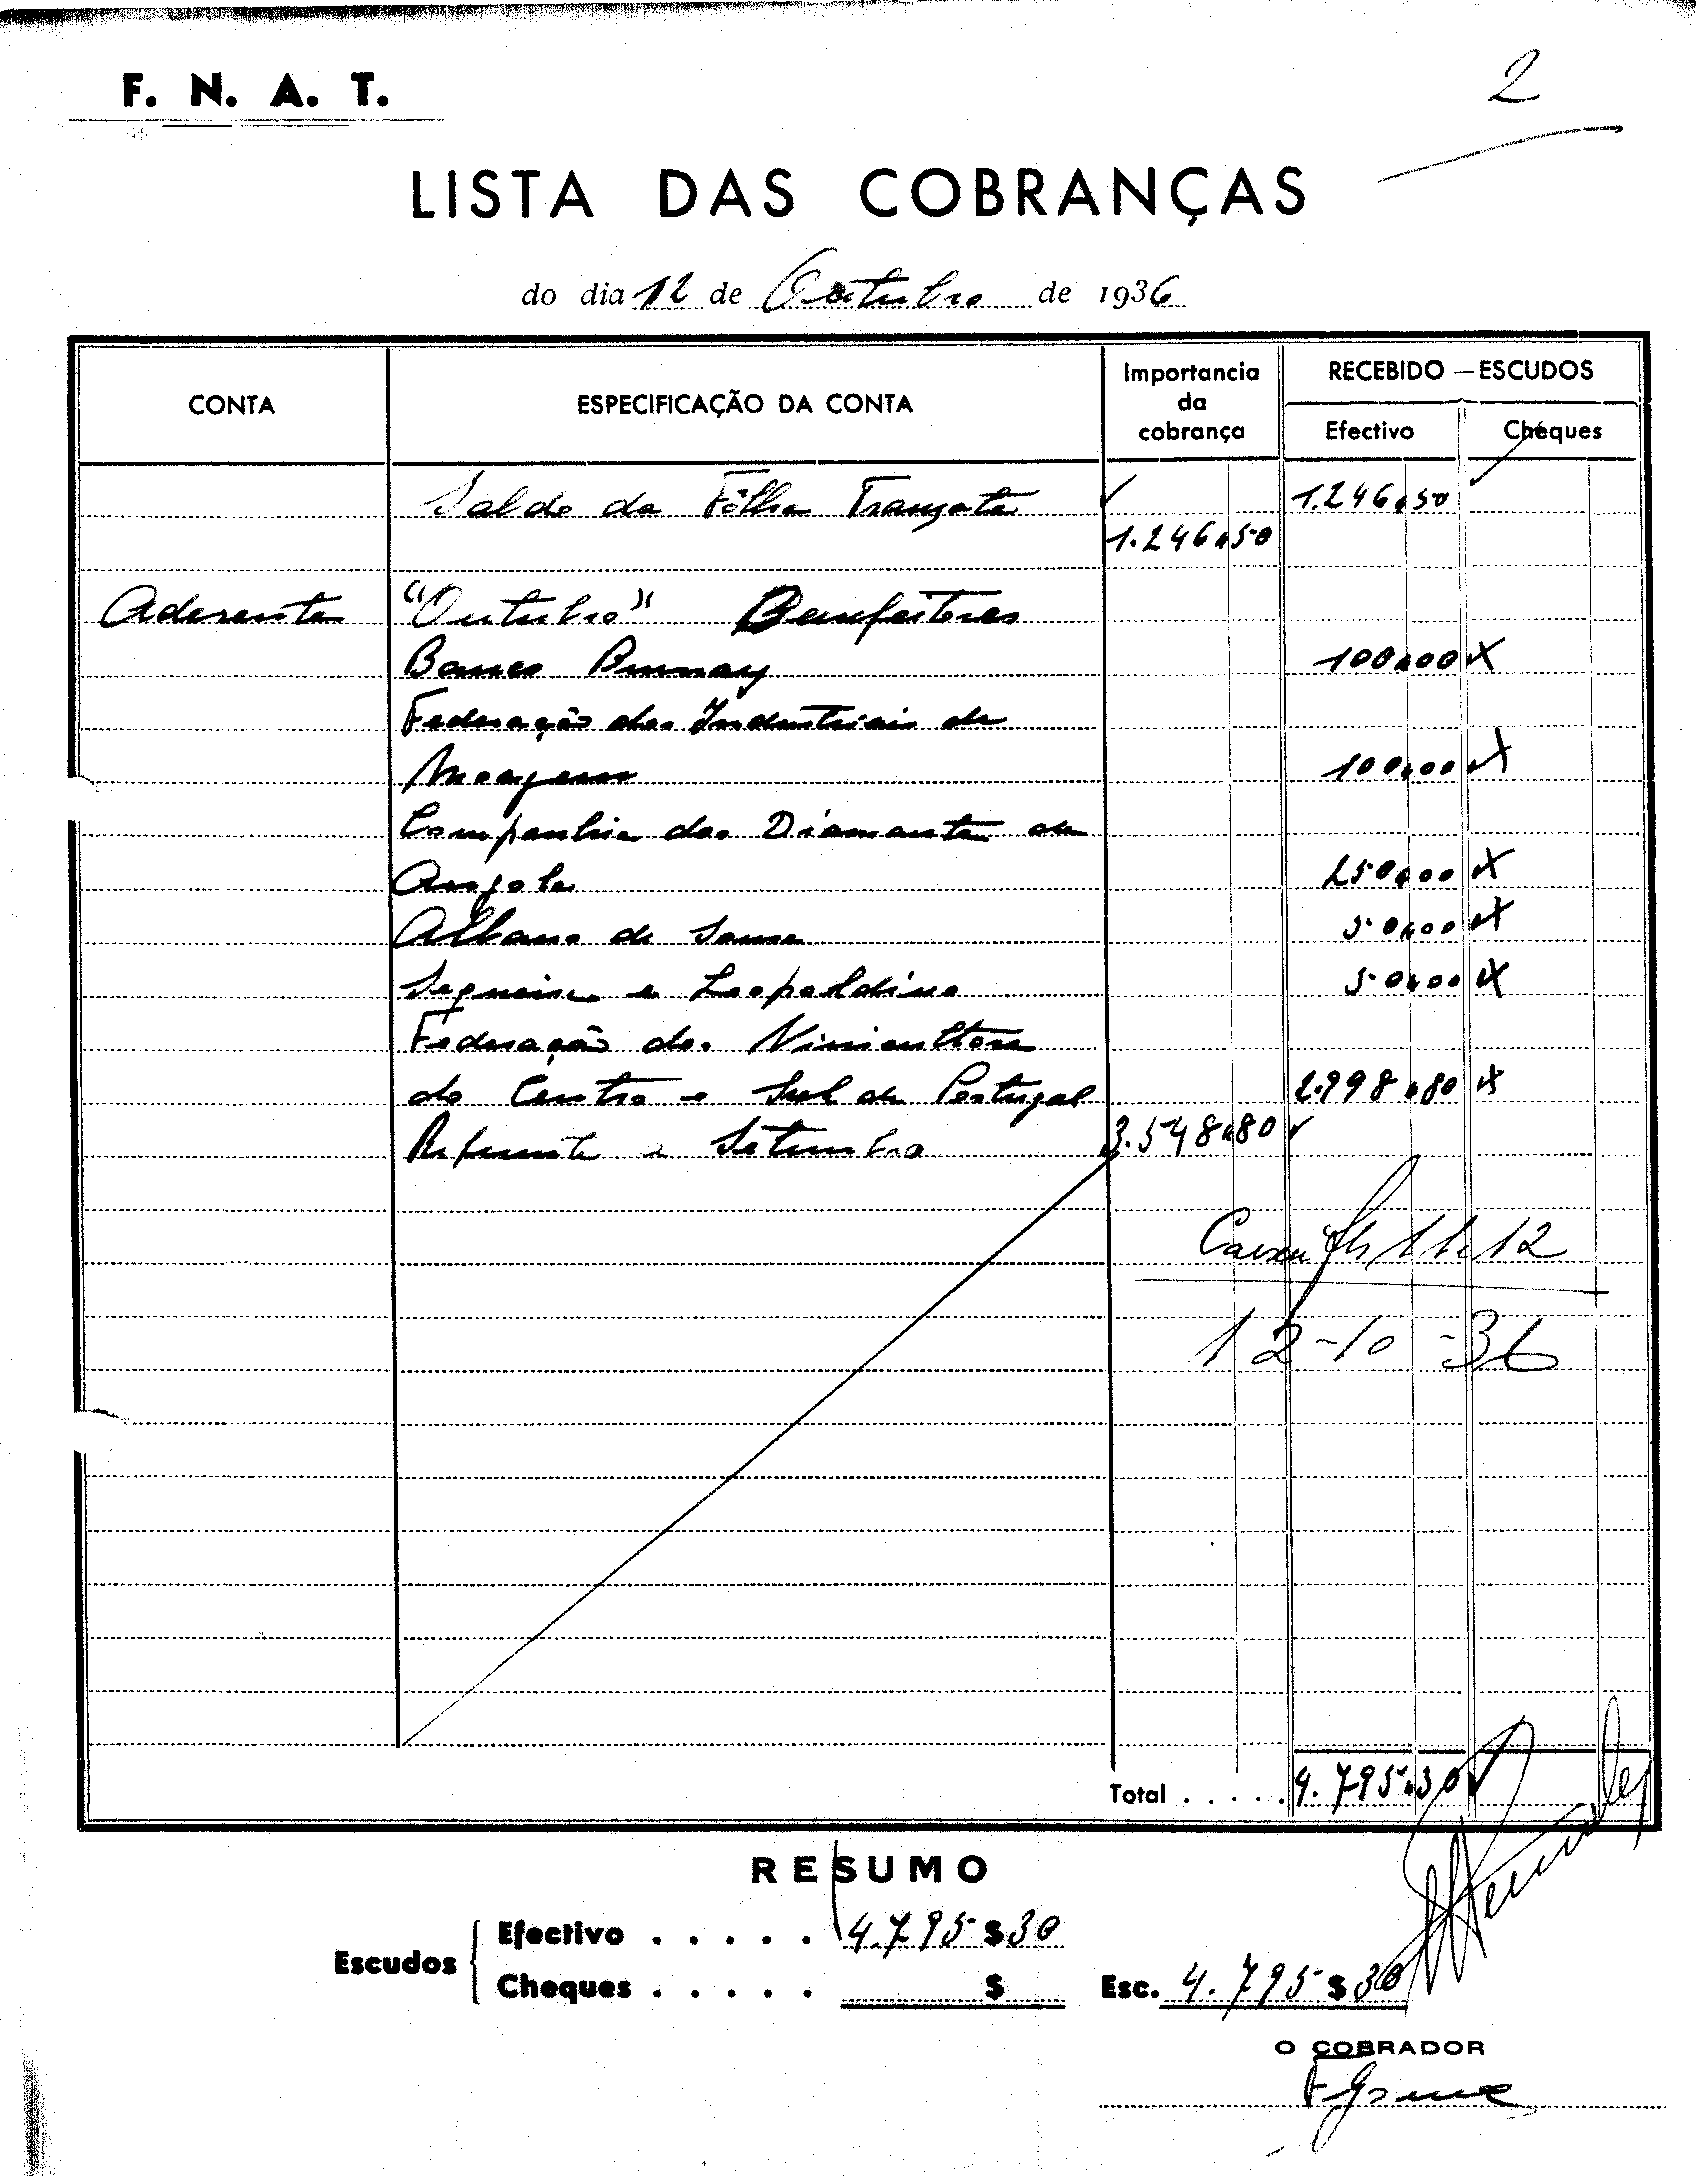 F. N. A. T.
2
LISTA DAS COBRANÇAS
do dia 12 de Outubro de 1936
CONTA
ESPECIFICAÇÃO DA CONTA
Importancia da cobrança
RECEBIDO — ESCUDOS
Efectivo
Chéques
Saldo da Fôlha Tranzata 1.246,50
1.246,50
Aderente "Outubro" Benfeitores
Banco Burnay 100,00
Federação dos Industriais de
Moagem 100,00
Companhia dos Diamantes de
Angola 250,00
Albano de Sousa 50,00
Sequeira e Leopoldino 50,00
Federação dos Vinicultores
do Centro e Sul de Portugal 2.998,80
Referente a Setembro 3.548,80
Caixa fls 11 e 12
12-10-36
Total . . . . . 4.795,30
RESUMO
Escudos
Efectivo . . . . . 4.795$30
Cheques . . . . . $
Esc. 4.795$30
O COBRADOR